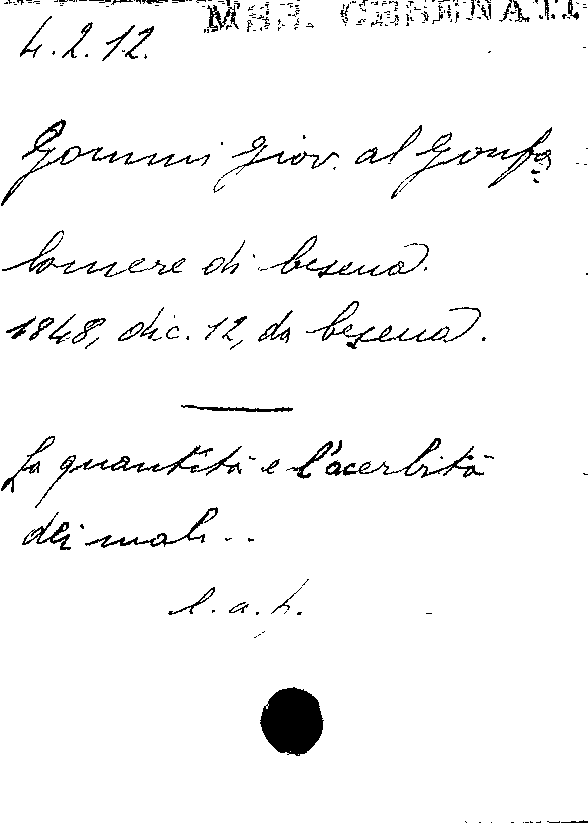 MSS. CESENATI
4.2.12.
Gommi Giov. al Gonfa
loniere di Cesena.
1848, dic. 12, da Cesena.
La quantità e l'acerbità
dei mali..
l.a.f.